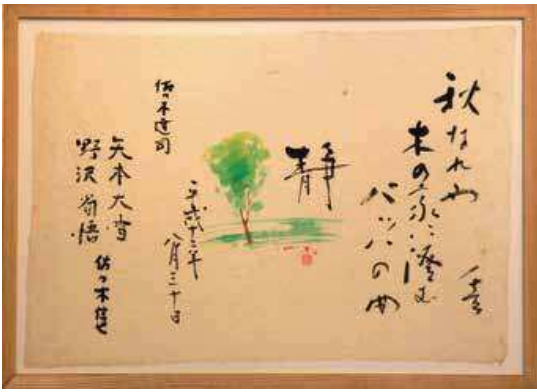 秋なれや
木の家に澄む
バッハの曲
静
平成十二年
八月三十日
佐々木達司
矢本大雪
野沢省悟
佐々木